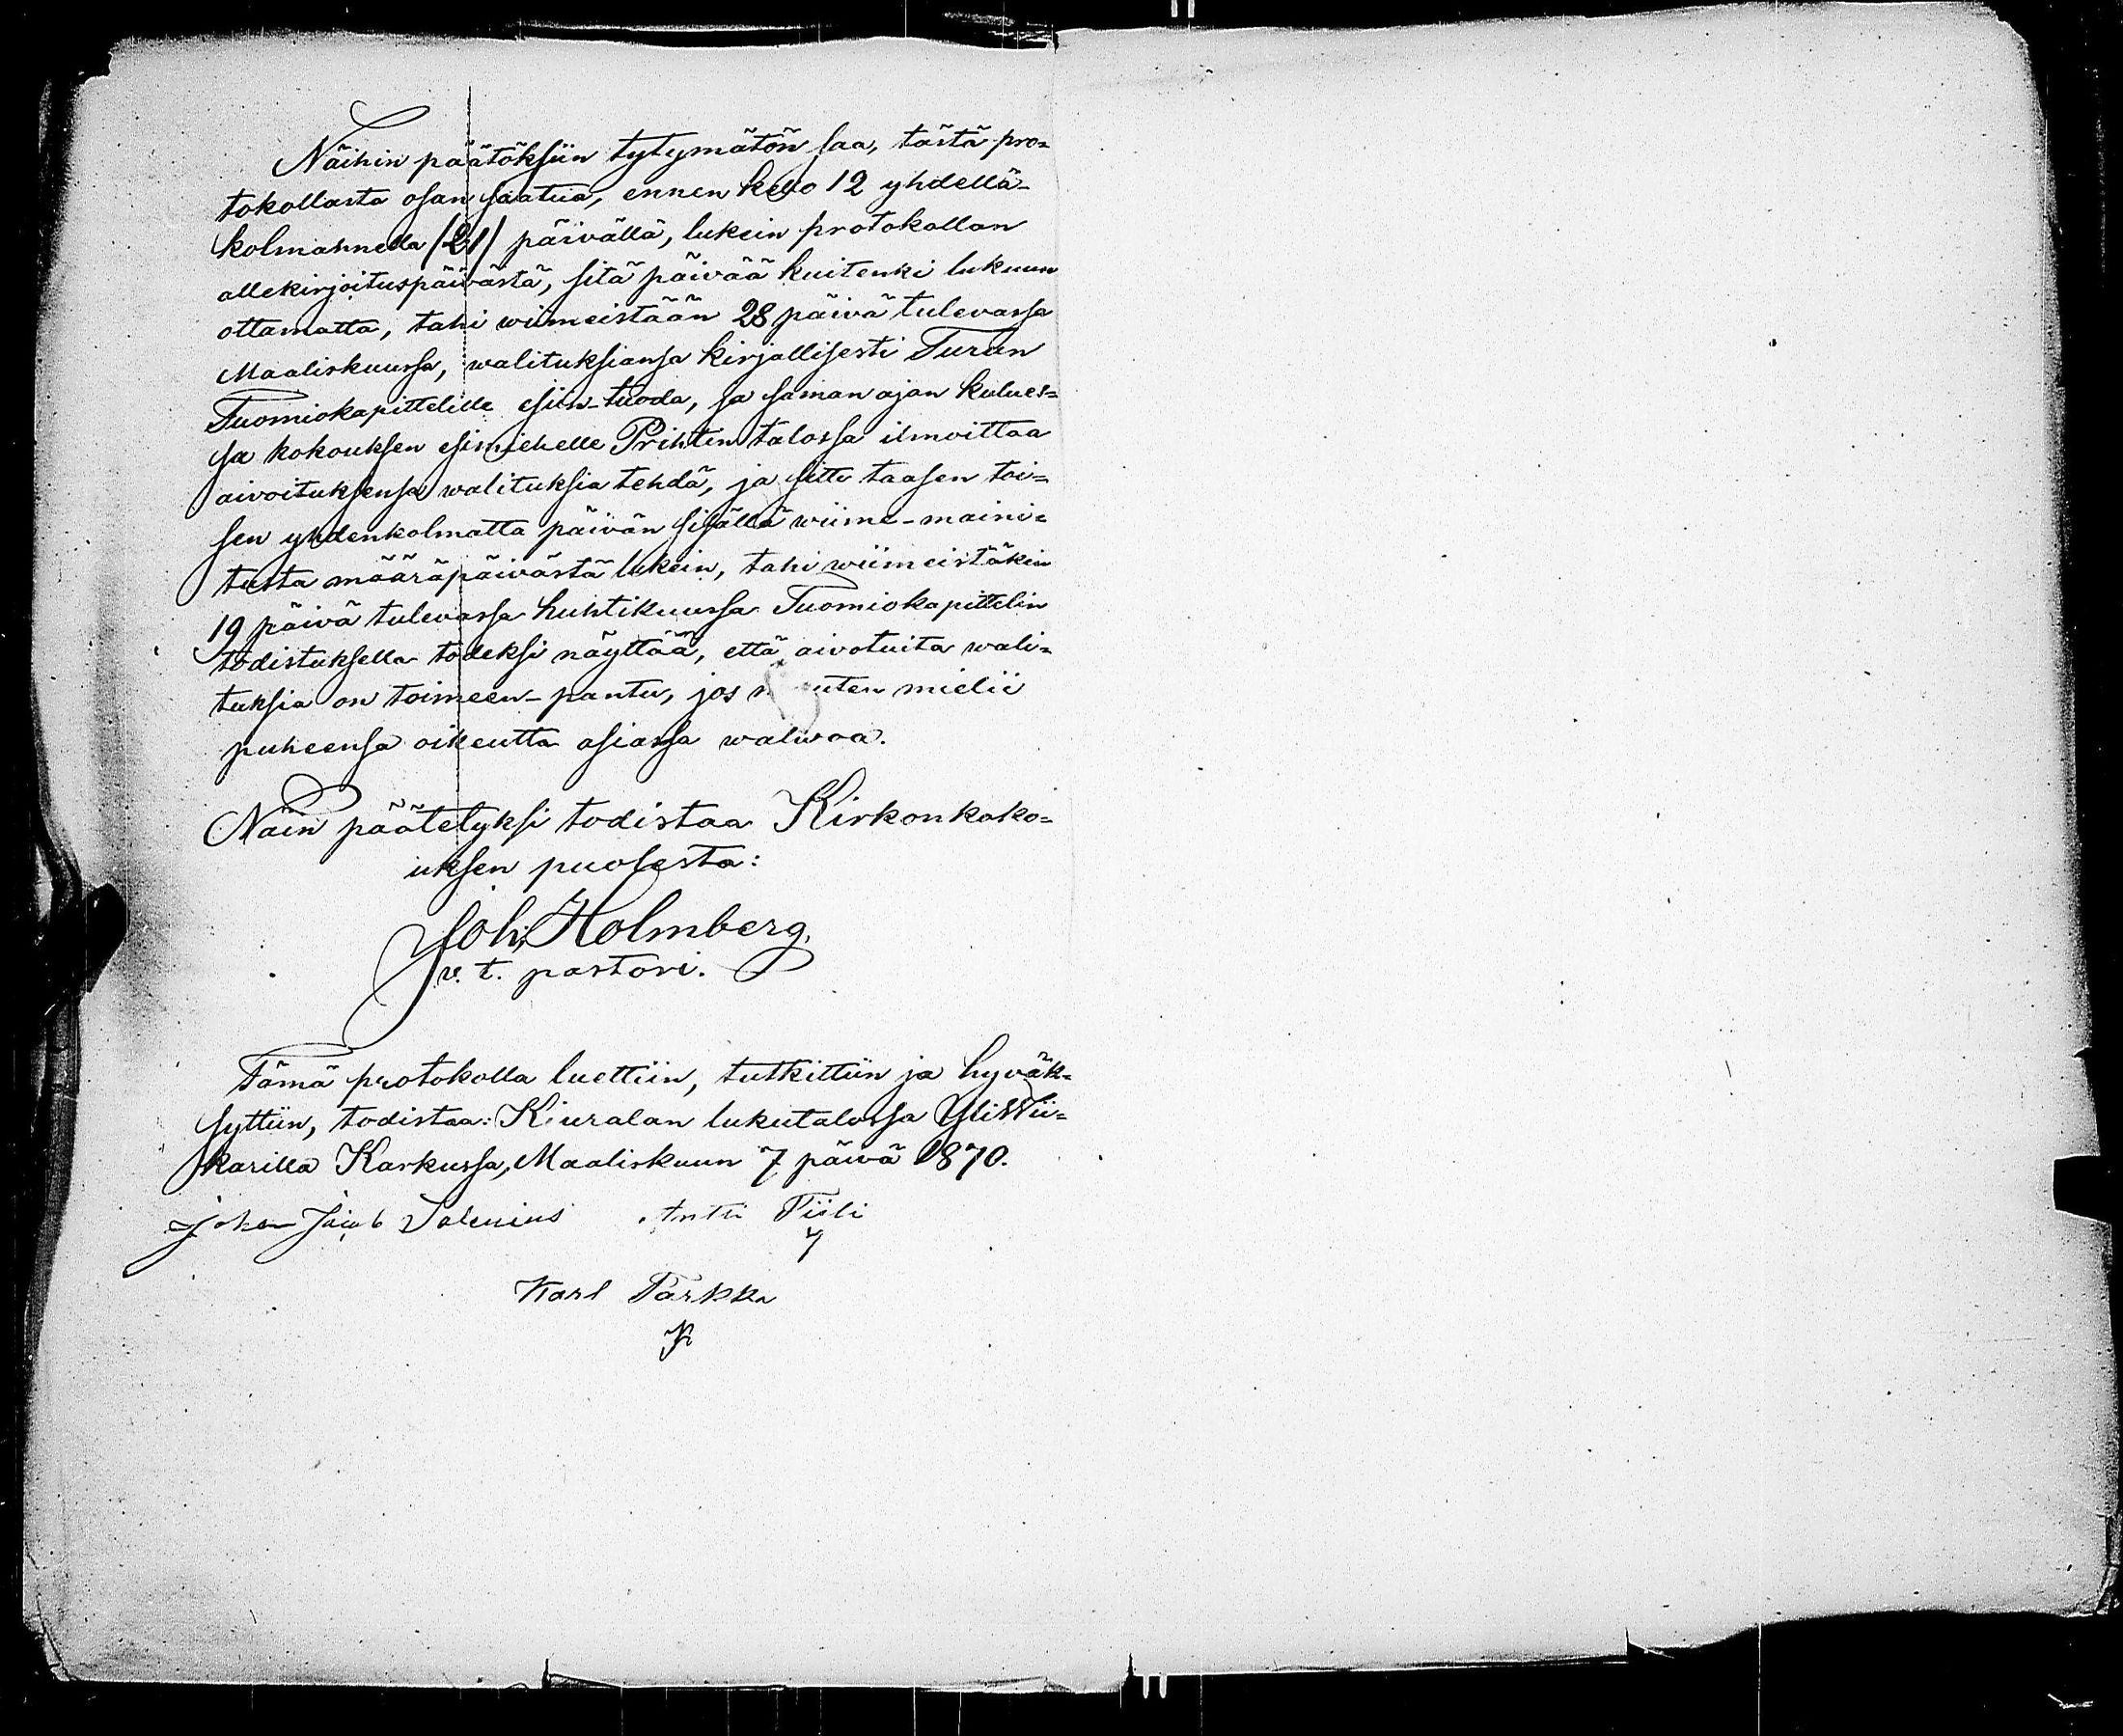 Näihin päätöksiin tytymätön saa, tästä pro=
tokollasta osan saatua, ennen kello 12 yhdellä-
kolmannella (21) päivällä, lukein protokollan
allekirjoituspäivästä, sitä päivää kuitenki lukuun
ottamatta, tahi wiimeistään 28 päivä tulevassa
Maaliskuussa, walituksiansa kirjallisesti Turun
Tuomiokapittelille esiin-tuoda, ja saman ajan kulues=
sa kokouksen esimiehelle Prihten talossa ilmoittaa
aivoituksensa walituksia tehdä, ja sitte taasen toi=
sen yhdenkolmatta päivän sisällä wiime-maini=
tusta määräpäivästä lukein, tahi wiimeistäkin
19 päivä tulevassa huhtikuussa Tuomiokapittelin
todistuksella todeksi näyttää, että aivotuita wali=
tuksia on toimeen-pantu, jos muuten mielii
puheensa oikeutta asiassa walwoa.
Näin päätetyksi todistaa Kirkonkoko=
uksen puolesta:
Joh. Holmberg.
v. t. pastori.
Tämä protokolla luettiin, tutkittiin ja hyväk=
syttiin, todistaa: Kiuralan lukutalossa Ylistii=
karilla Karkussa, Maaliskuun 7 päivä 1870.
Johan Jacob Salenius Antti Tiili
Karl Tarkka